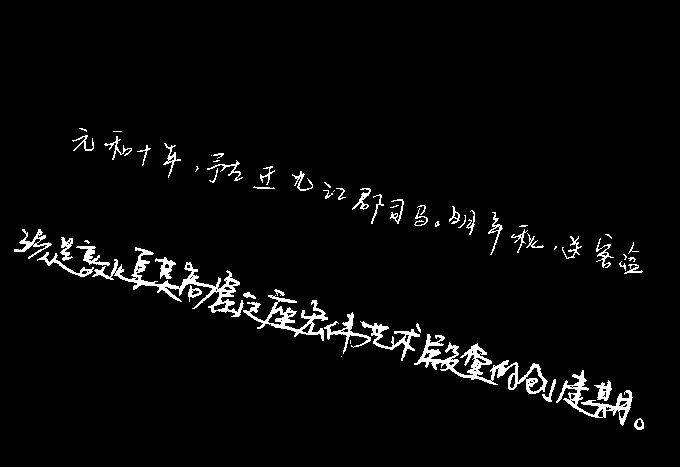 元和十年,予左迁九江郡司马。明年秋,送客湓
这是敦煌莫高窟这座宏伟艺术殿堂的创建期。